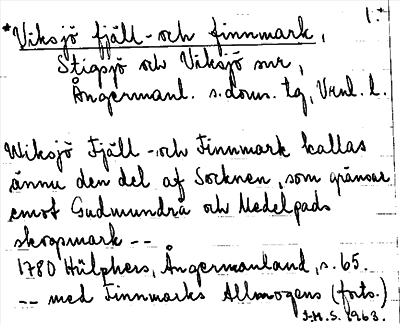 1.*
*Viksjö fjäll- och finnmark,
Stigsjö och Viksjö snr,
Ångermanl. s. doms. tg, Vnl. l.
Wiksjö Fjäll - och Finnmark kallas
ännu den del af Socknen, som gränsar
emot Gudmundrå och Medelpads
skogsmark --
1780 Hülphers, Ångermanland, s. 65.
-- med Finnmarks Allmogens (forts.)
J.H.S. 1963.